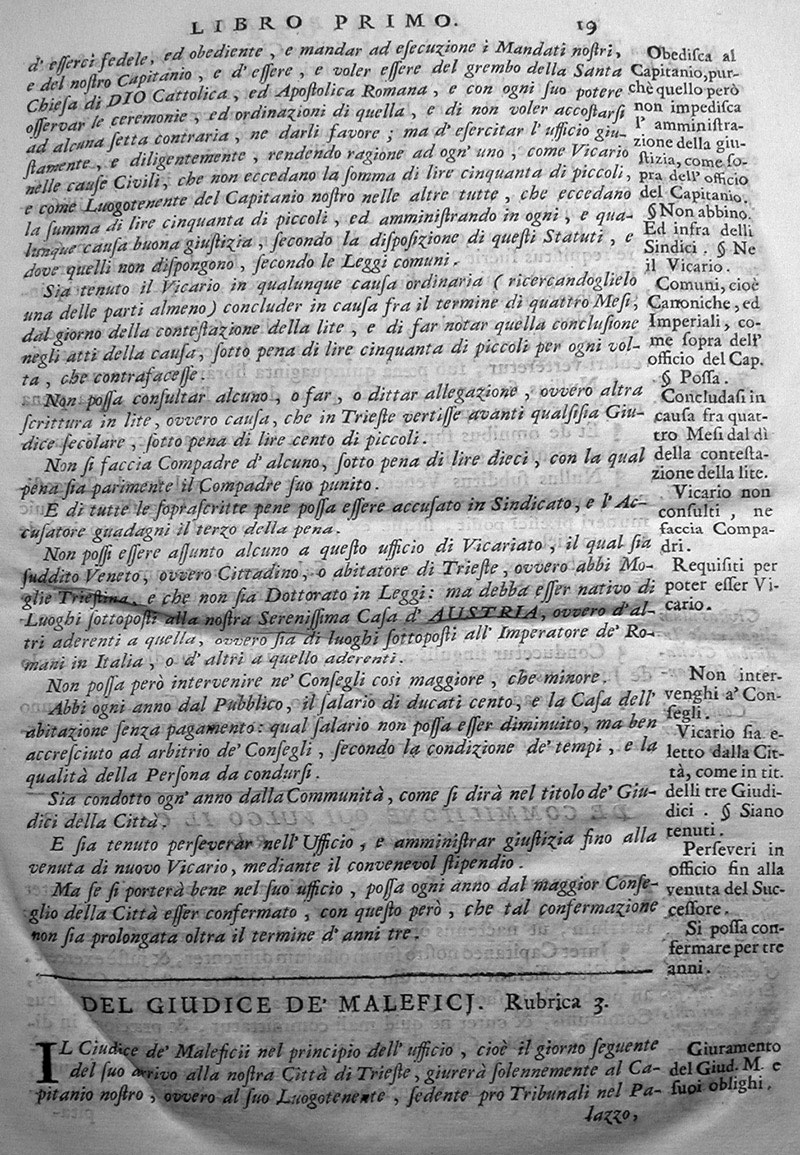 LIBRO PRIMO. 19
d' eſſerci fedele, ed obediente, e mandar ad eſecuzione i Mandati noſtri,
e del noſtro Capitanio, e d' eſſere, e voler eſſere del grembo della Santa
Chieſa di DIO Cattolica, ed Apoſtolica Romana, e con ogni ſuo potere
oſſervar le ceremonie, ed ordinazioni di quella, e di non voler accoſtarſi
ad alcuna ſetta contraria, ne darli favore; ma d' eſercitar l' ufficio giu-
ſtamente, e diligentemente, rendendo ragione ad ogn' uno, come Vicario
nelle cauſe Civili, che non eccedano la ſomma di lire cinquanta di piccoli,
e come Luogotenente del Capitanio noſtro nelle altre tutte, che eccedano
la ſumma di lire cinquanta di piccoli, ed amminiſtrando in ogni, e qua-
lunque cauſa buona giuſtizia, ſecondo la diſpoſizione di queſti Statuti, e
dove quelli non diſpongono, ſecondo le Leggi comuni.
Sia tenuto il Vicario in qualunque cauſa ordinaria (ricercandoglielo
una delle parti almeno) concluder in cauſa fra il termine di quattro Meſi,
dal giorno della conteſtazione della lite, e di far notar quella concluſione
negli atti della cauſa, ſotto pena di lire cinquanta di piccoli per ogni vol-
ta, che contrafaceſſe.
Non poſſa conſultar alcuno, o far, o dittar allegazione, ovvero altra
ſcrittura in lite, ovvero cauſa, che in Trieſte vertiſſe avanti qualſiſia Giu-
dice ſecolare, ſotto pena di lire cento di piccoli.
Non ſi faccia Compadre d' alcuno, ſotto pena di lire dieci, con la qual
pena ſia parimente il Compadre ſuo punito.
E di tutte le ſopraſcritte pene poſſa eſſere accuſato in Sindicato, e l' Ac-
cuſatore guadagni il terzo della pena.
Non poſſi eſſere aſſunto alcuno a queſto ufficio di Vicariato, il qual ſia
ſuddito Veneto, ovvero Cittadino, o abitatore di Trieſte, ovvero abbi Mo-
glie Trieſtina, e che non ſia Dottorato in Leggi: ma debba eſſer nativo di
Luoghi ſottopoſti alla noſtra Sereniſſima Caſa d' AUSTRIA, ovvero d' al-
tri aderenti a quella, ovvero ſia di luoghi ſottopoſti all' Imperatore de' Ro-
mani in Italia, o d' altri a quello aderenti.
Non poſſa però intervenire ne' Conſegli così maggiore, che minore.
Abbi ogni anno dal Pubblico, il ſalario di ducati cento, e la Caſa dell'
abitazione ſenza pagamento: qual ſalario non poſſa eſſer diminuito, ma ben
accreſciuto ad arbitrio de' Conſegli, ſecondo la condizione de' tempi, e la
qualità della Perſona da condurſi.
Sia condotto ogn' anno dalla Communità, come ſi dirà nel titolo de' Giu-
dici della Città.
E ſia tenuto perſeverar nell' Ufficio, e amminiſtrar giuſtizia fino alla
venuta di nuovo Vicario, mediante il convenevol ſtipendio.
Ma ſe ſi porterà bene nel ſuo ufficio, poſſa ogni anno dal maggior Conſe-
glio della Città eſſer confermato, con queſto però, che tal confermazione
non ſia prolongata oltra il termine d' anni tre.
Obediſca al
Capitanio, pur-
chè quello però
non impediſca
l' amminiſtra-
zione della giu-
ſtizia, come ſo-
pra dell' officio
del Capitanio.
§ Non abbino.
Ed infra delli
Sindici. § Ne
il Vicario.
Comuni, cioè
Canoniche, ed
Imperiali, co-
me ſopra dell'
officio del Cap.
§ Poſſa.
Concludaſi in
cauſa fra quat-
tro Meſi dal dì
della conteſta-
zione della lite.
Vicario non
conſulti, ne
faccia Compa-
dri.
Requiſiti per
poter eſſer Vi-
cario.
Non inter-
venghi a' Con-
ſegli.
Vicario ſia e-
letto dalla Cit-
tà, come in tit.
delli tre Giudi-
dici. § Siano
tenuti.
Perſeveri in
officio fin alla
venuta del Suc-
ceſſore.
Si poſſa con-
fermare per tre
anni.
DEL GIUDICE DE' MALEFICJ. Rubrica 3.
IL Ciudice de' Maleficii nel principio dell' ufficio, cioè il giorno ſeguente
del ſuo arrivo alla noſtra Città di Trieſte, giurerà ſolennemente al Ca-
pitanio noſtro, ovvero al ſuo Luogotenente, ſedente pro Tribunali nel Pa-
lazzo,
Giuramento
del Giud. M. e
ſuoi oblighi.